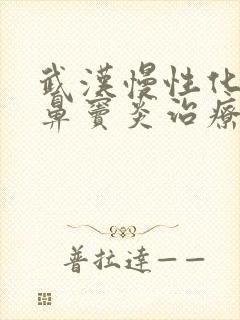 武漢慢性化
鼻竇炎治療
普拉達——